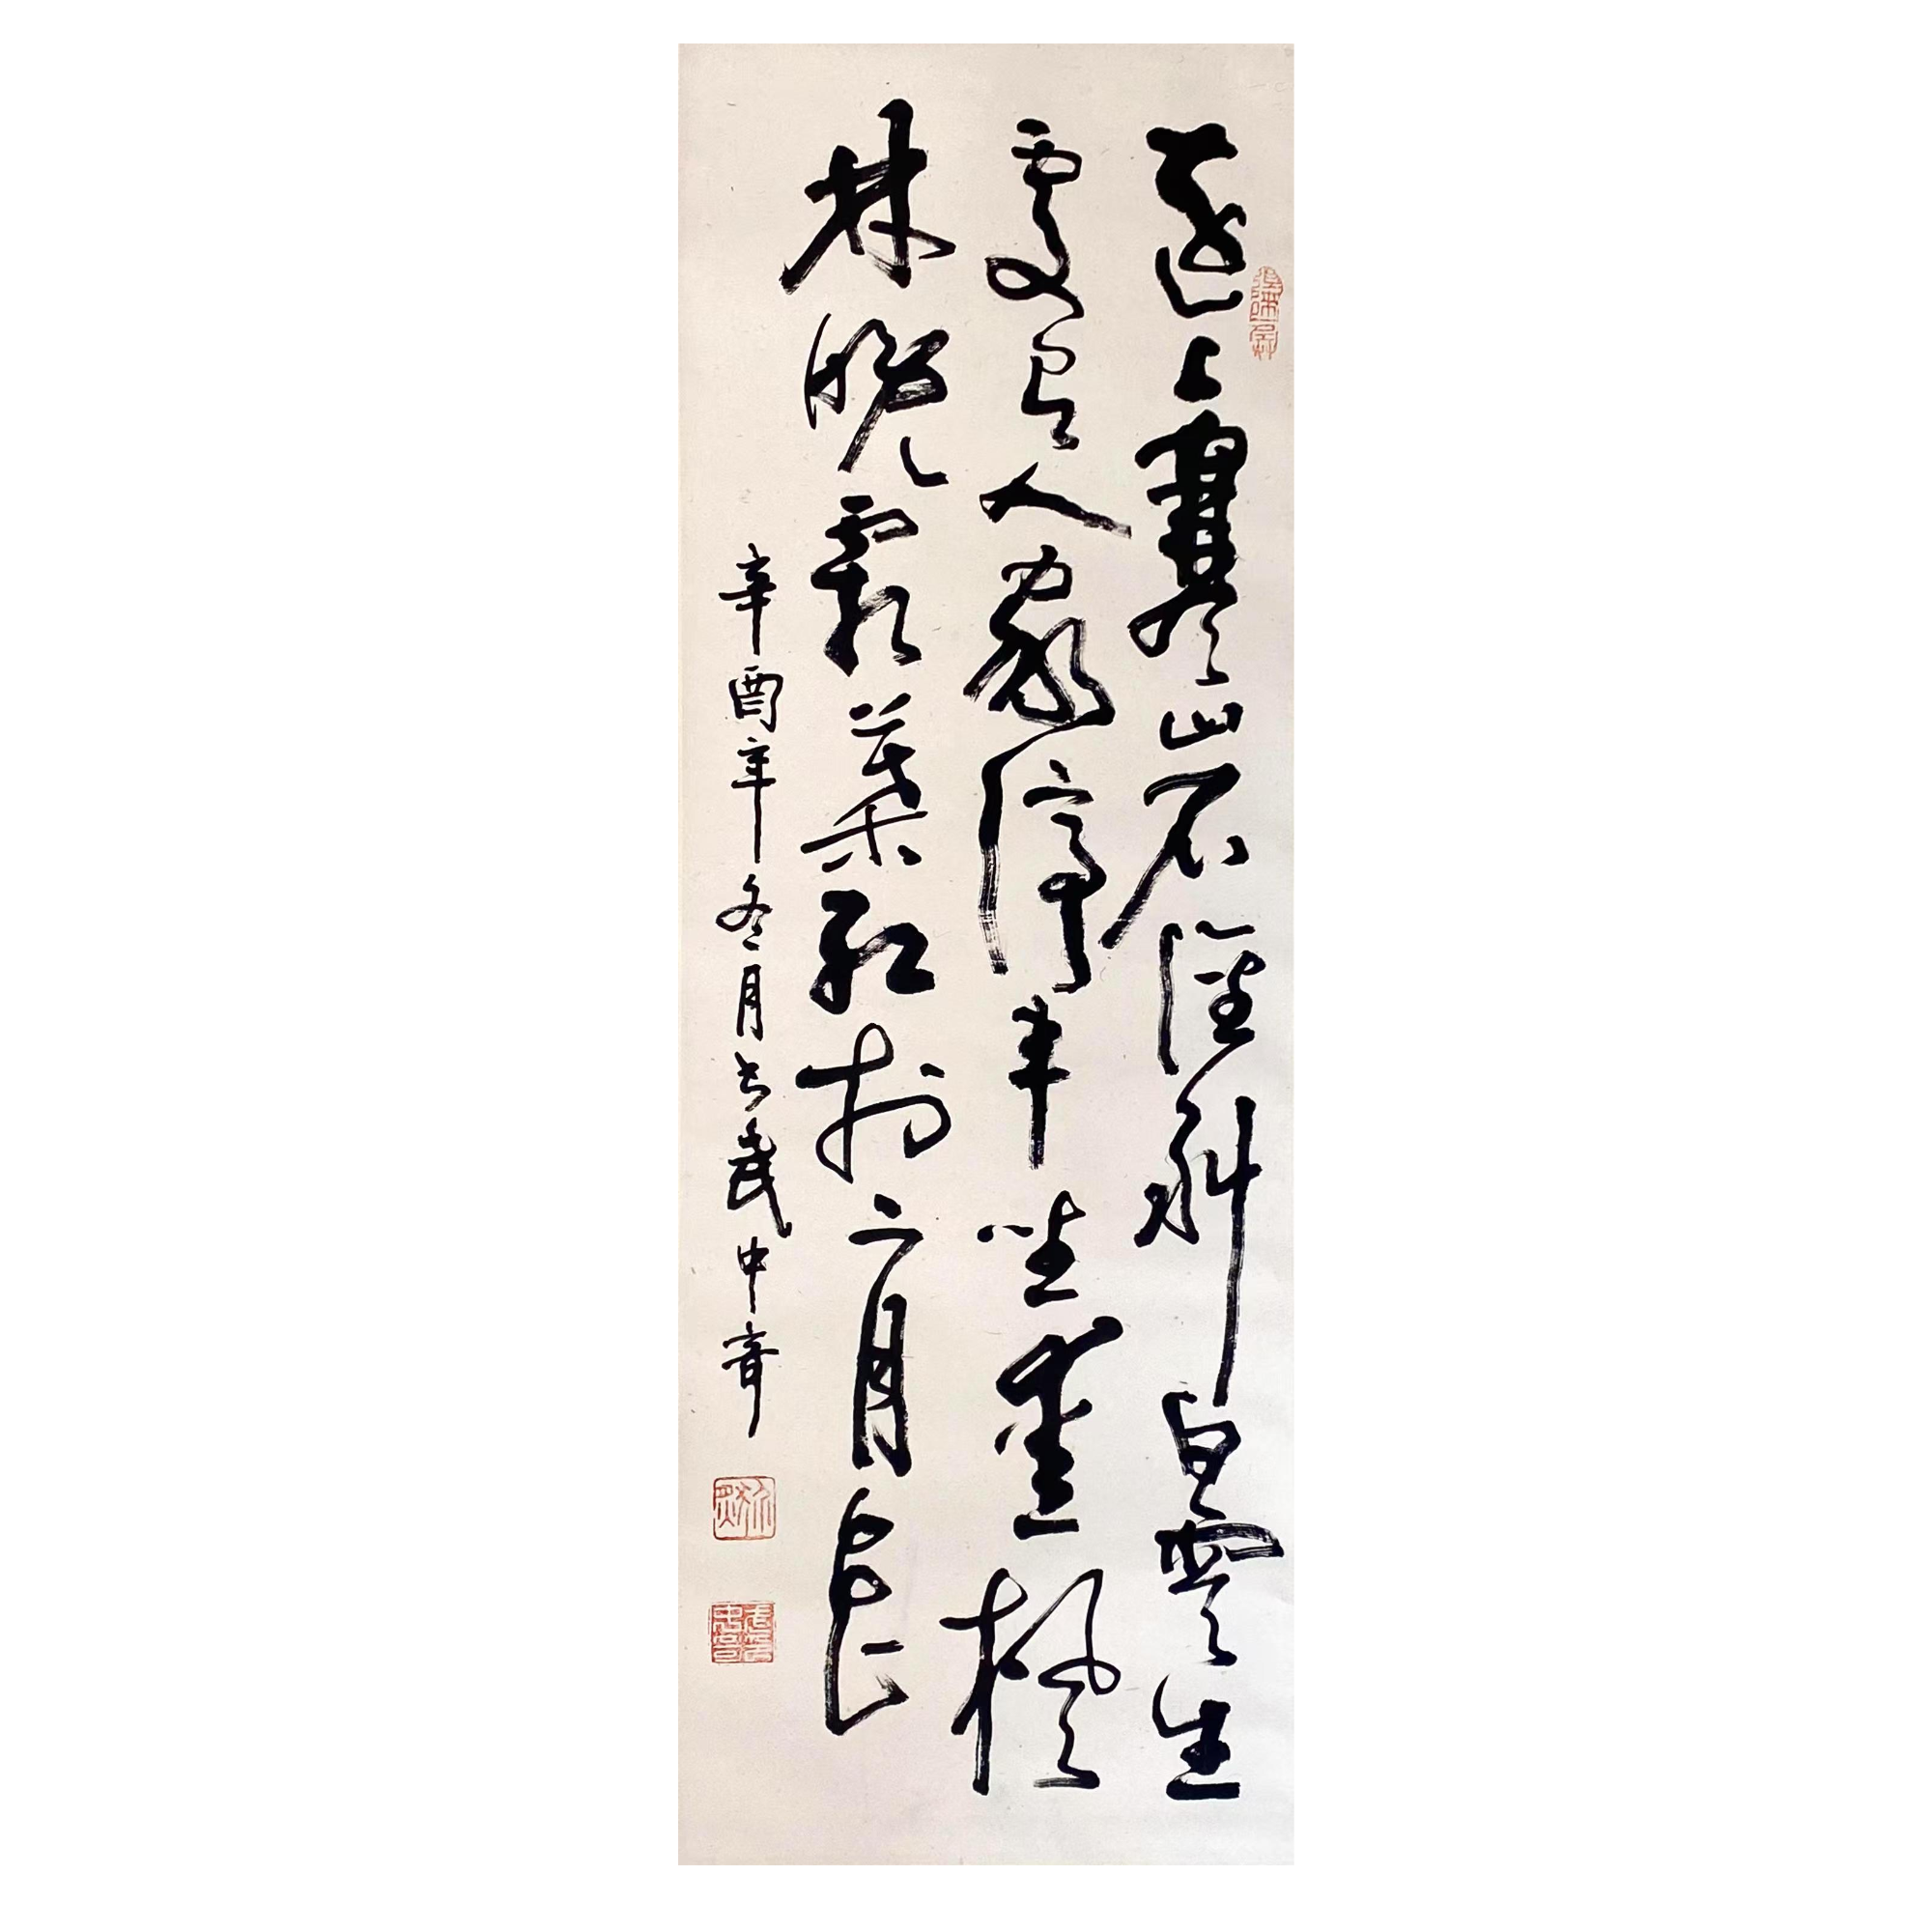 遠上寒山石徑斜白雲生
處有人家停車坐愛楓
林晚霜葉紅於二月花
辛酉年冬月書武中奇